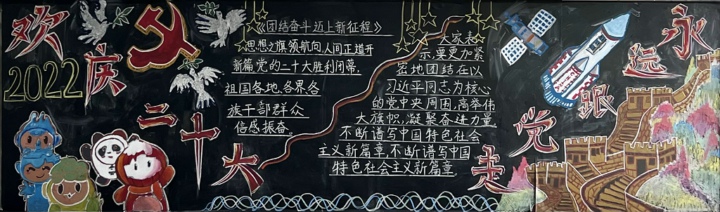 欢庆二十大
2022
《团结奋斗迈上新征程》
思想之旗领航向人间正道开
新篇党的二十大胜利闭幕,
祖国各地各界各
族干部群众
倍感振奋。
大家表
示,要更加紧
密地团结在以
习近平同志为核心
的党中央周围,高举伟
大旗帜,凝聚奋进力量
不断谱写中国特色社会
主义新篇章,不断谱写中国
特色社会主义新篇章
永远跟党走